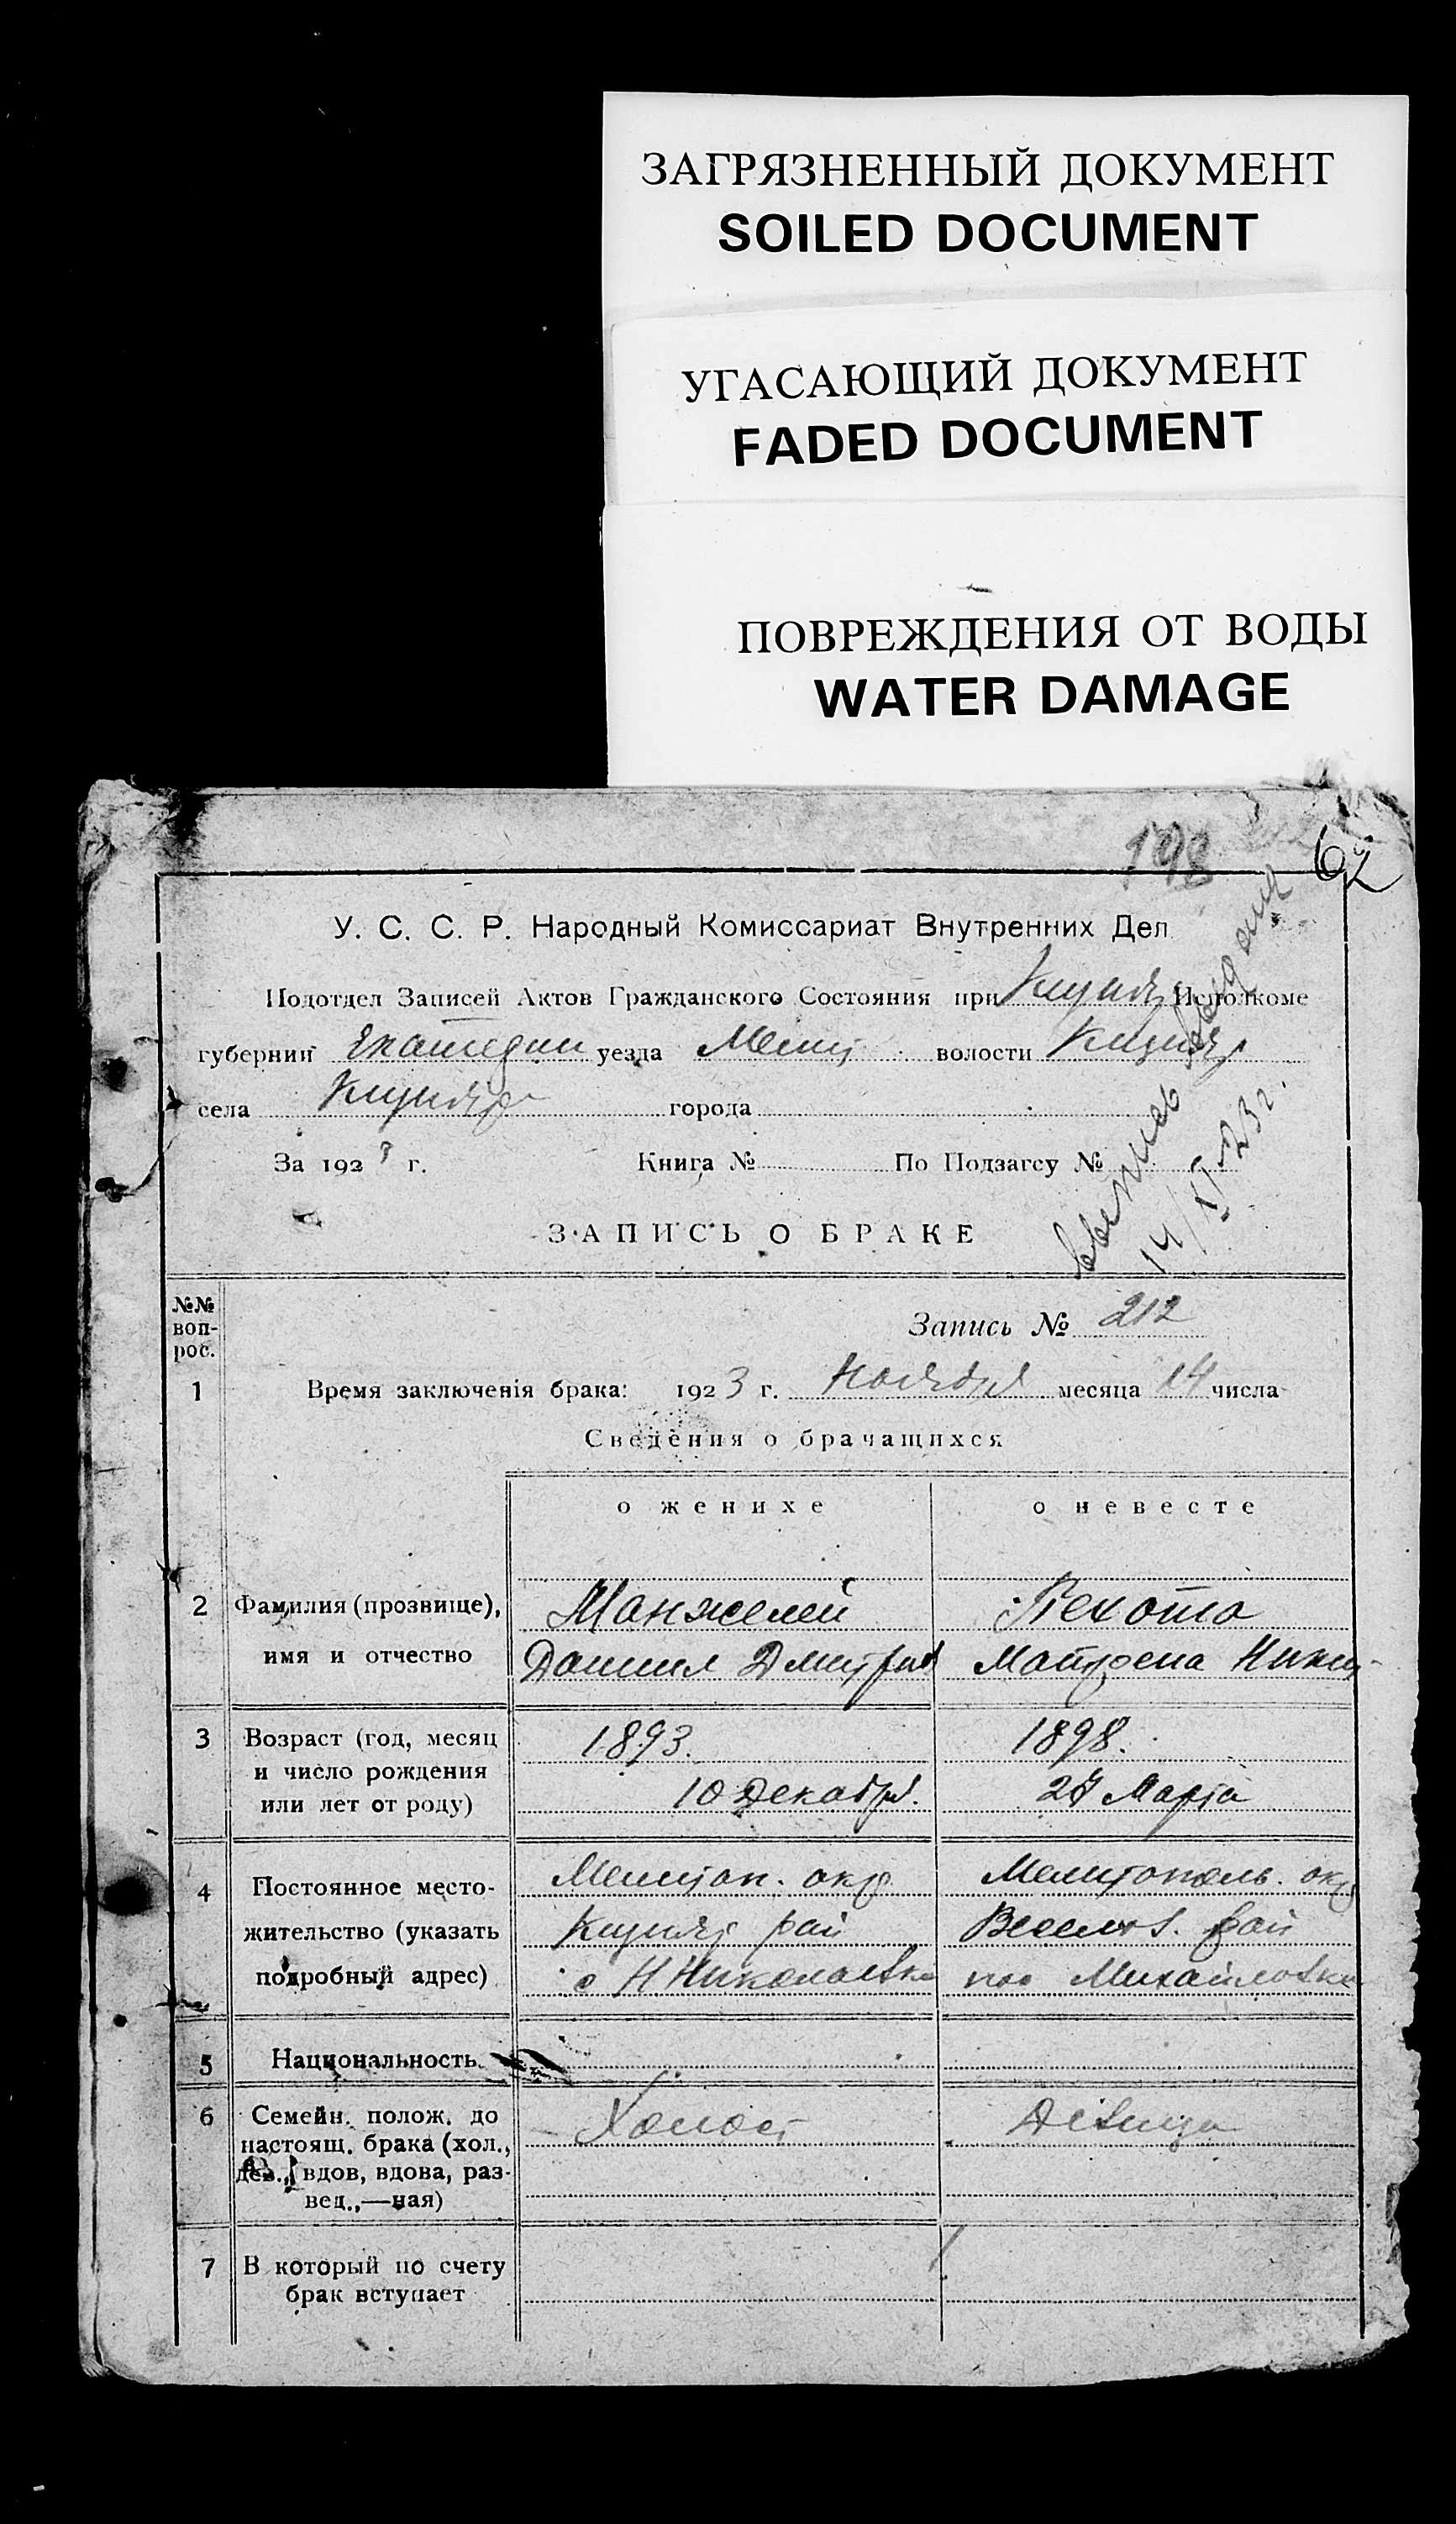 ЗАГРЯЗНЕННЫЙ ДОКУМЕНТ
SOILED DOCUMENT
УГАСАЮЩИЙ ДОКУМЕНТ
FADED DOCUMENT
ПОВРЕЖДЕНИЯ ОТ ВОДЫ
WATER DAMAGE
198
62
У. С. С. Р. Народный Комиссариат Внутренних Дел
Подотдел Записей Актов Гражданского Состояния при Исполкоме
губернии Екатерин уезда Мелит волости
села города
За 1923 г. Книга № По Подзагсу №
14/XI-23 г.
ЗАПИСЬ О БРАКЕ
№№ вопрос.
Запись № 212
1 Время заключенія брака: 1923 г. Ноября месяца 14 числа
Сведения о брачащихся
о женихе о невесте
2 Фамилия (прозвище), Манжелей Пехота
имя и отчество Даниил Дмитриев Матрена Никит
3 Возраст (год, месяц 1893. 1898.
и число рождения
или лет от роду) 10 Декабря. 27 Марта
4 Постоянное место- Мелитоп. окр. Мелитополь. окр
жительство (указать рай Веселов. рай
подробный адрес) с Н Николаевка пос Михайловка
5 Национальность.
6 Семейн. полож. до Холост Девица
настоящ. брака (хол.,
дев., вдов, вдова, раз-
вед.,—ная)
7 В который по счету
брак вступает